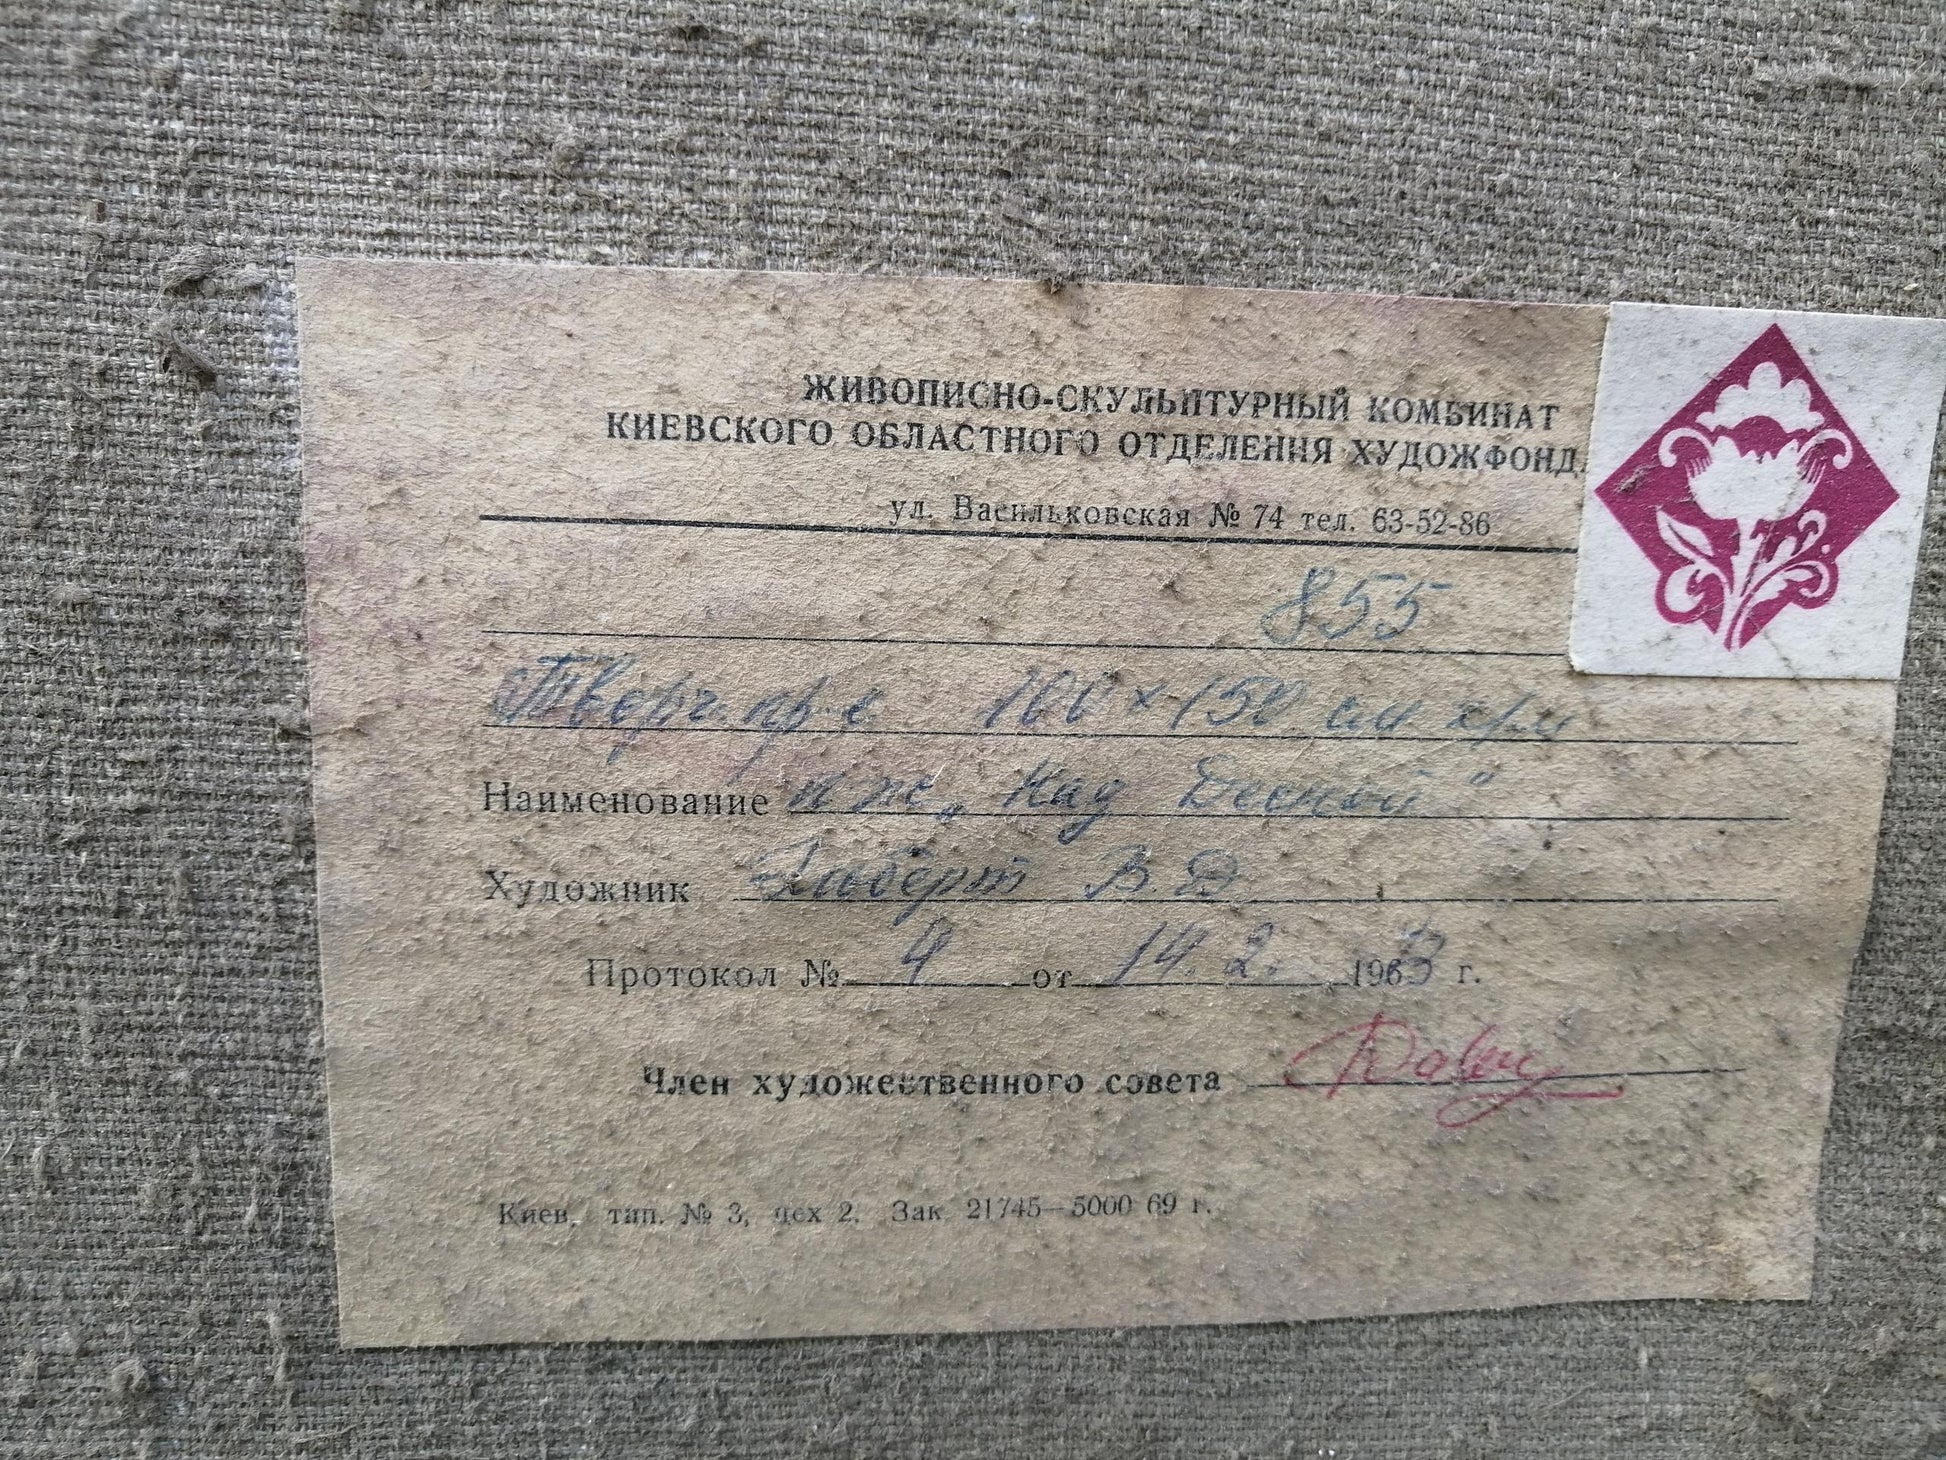 ЖИВОПИСНО-СКУЛЬПТУРНЫЙ КОМБИНАТ
КИЕВСКОГО ОБЛАСТНОГО ОТДЕЛЕНИЯ ХУДОЖФОНД
ул. Васильковская № 74 тел. 63-52-86
855
Творч. пр-е 100 х 150 см х/м
Наименование „Над Десной"
Художник В. Д.
Протокол № 4 от 14. 2. 1973 г.
Член художественного совета
Киев, тип. № 3, цех 2, Зак 21745—5000 69 г.